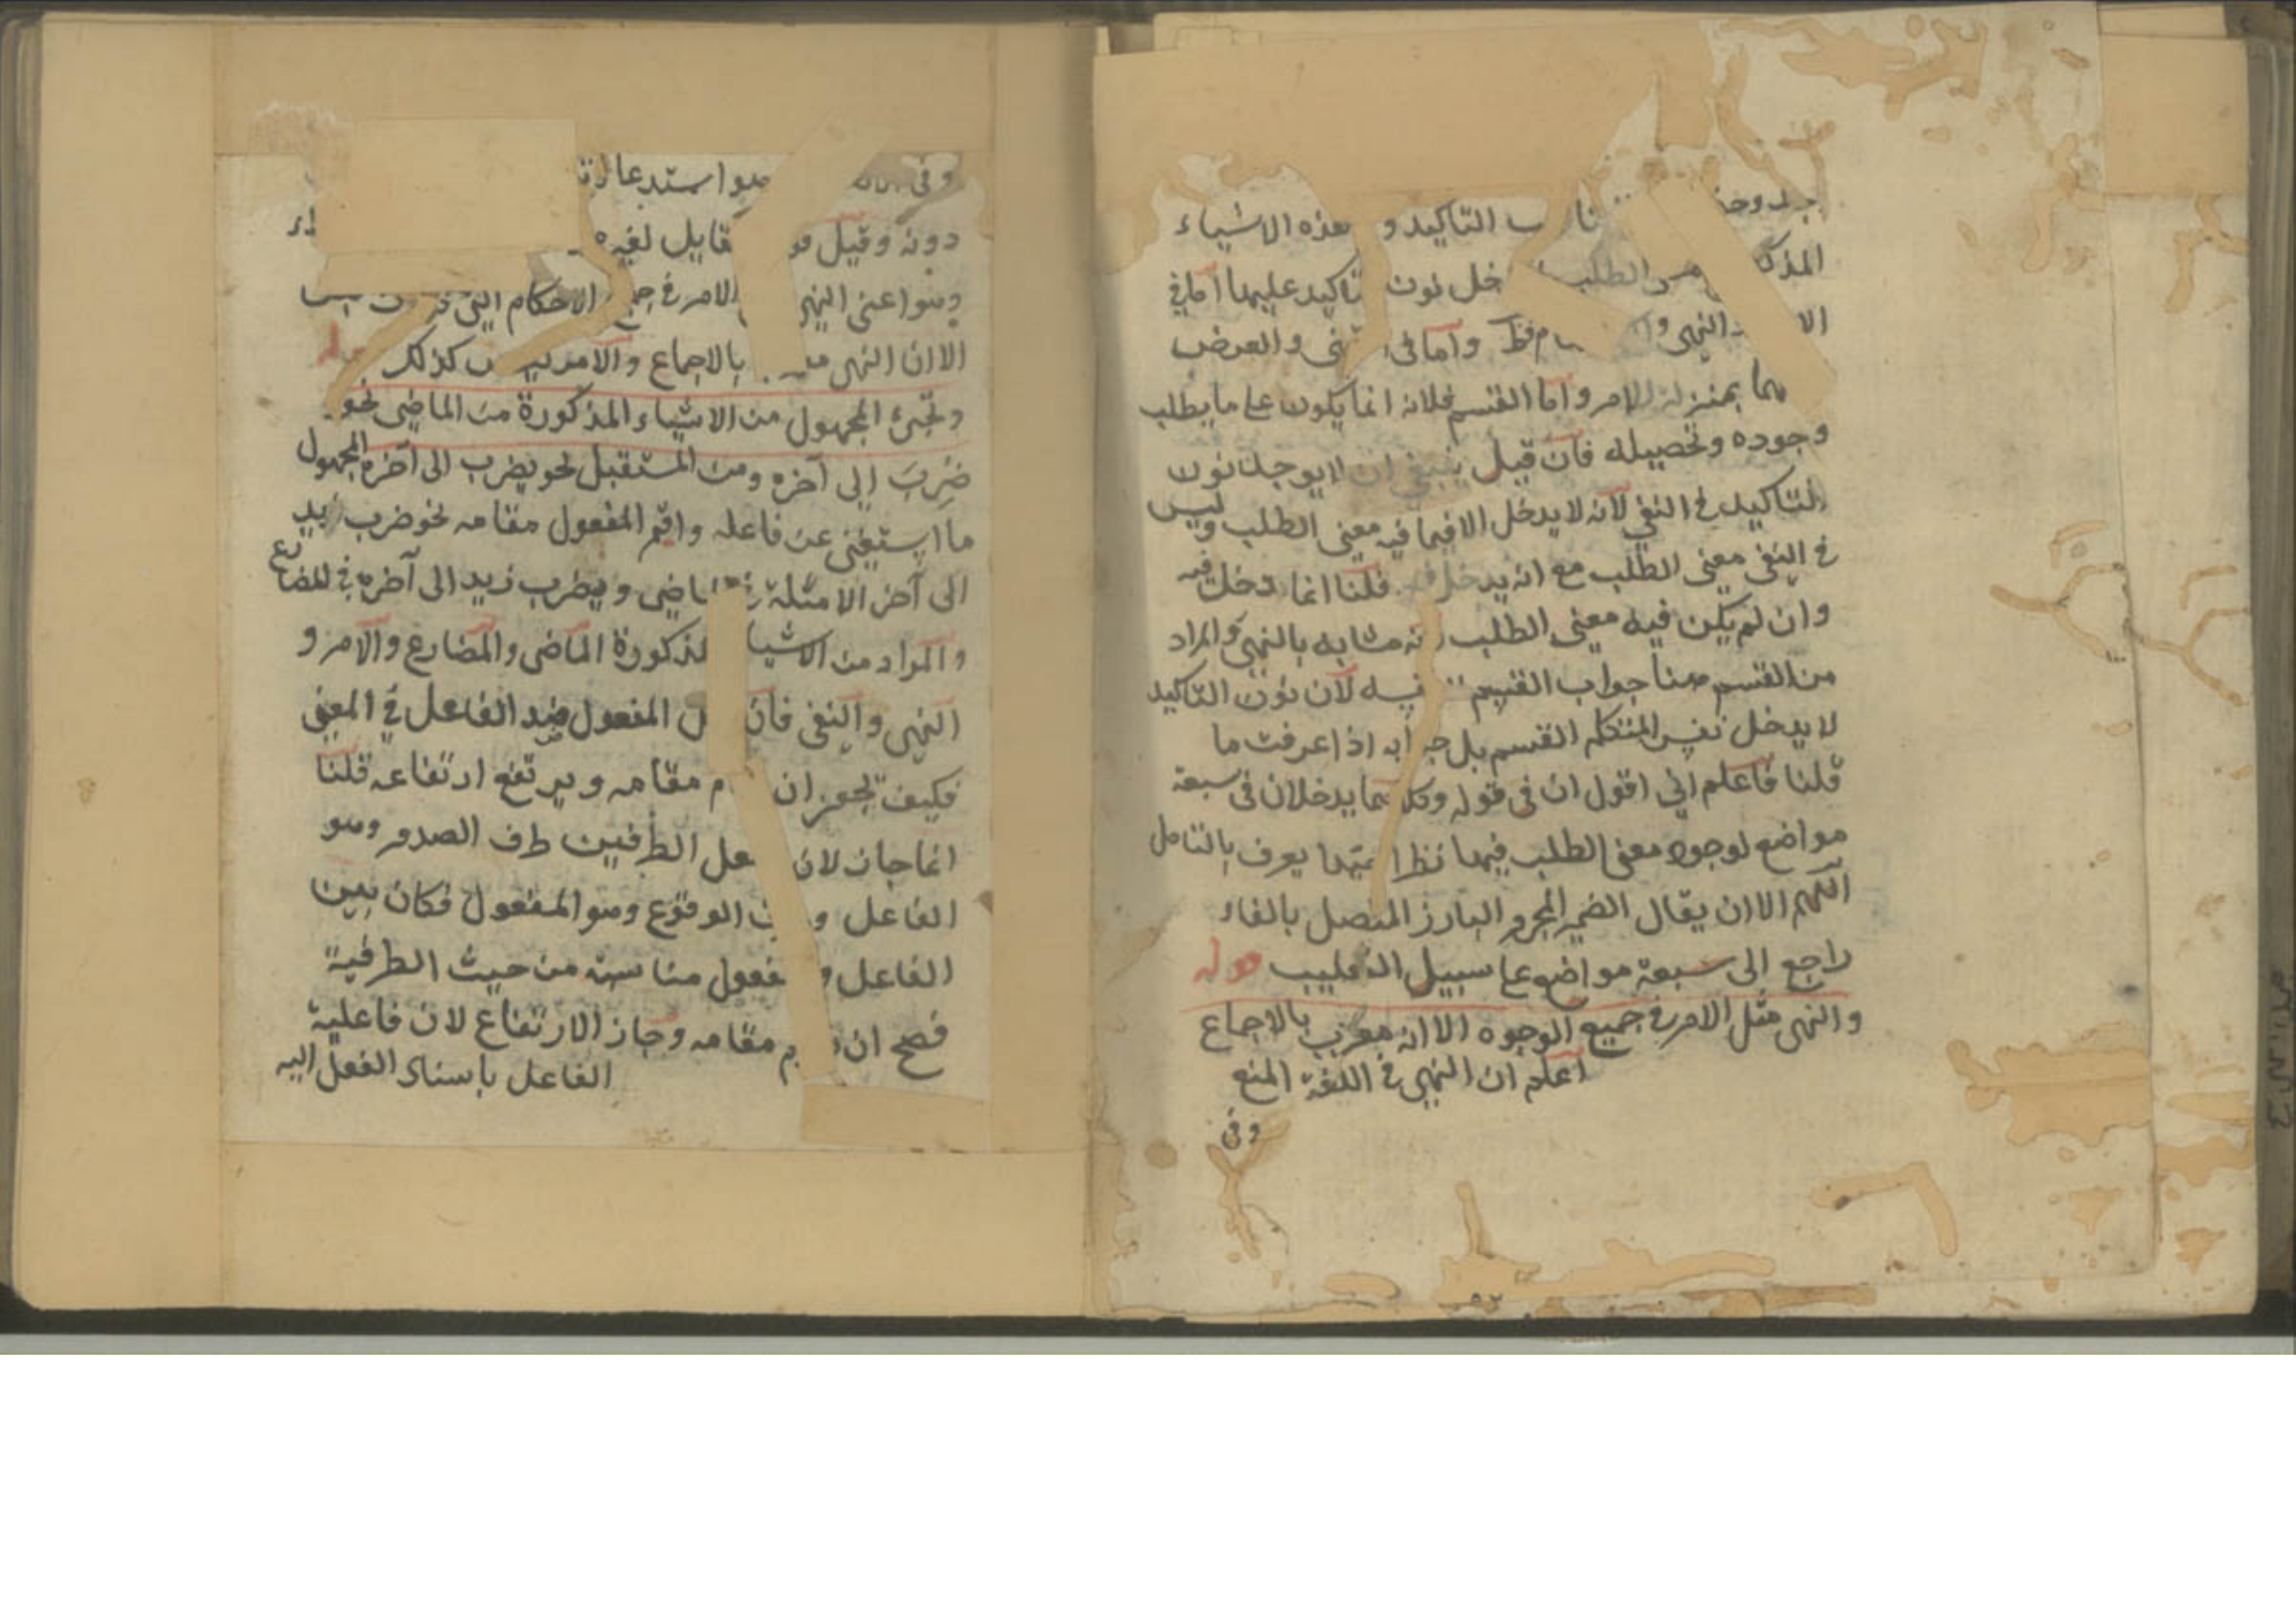 التاكيد و هذه الاشياء
الطلب خل نون تاكيد عليها اما في
النهى و فظ واما في والعرض
بمنزلة الامر واما القسم فلانه انما يكون على ما يطلب
وجوده وتحصيله فان قيل ينبغي ان لا يوجد نون
التاكيد في النفي لانه لا يدخل الا فيما فيه معنى الطلب وليس
في النفى معنى الطلب مع انه يدخل فيه قلنا انما دخل فيه
وان لم يكن فيه معنى الطلب مشابه بالنهى والمراد
من القسم هنا جواب القسم لان نون التاكيد
لا يدخل نفس المتكلم القسم بل جوابه اذا عرفت ما
قلنا فاعلم اني اقول ان في قوله وكلاهما يدخلان في سبعة
مواضع لوجود معنى الطلب فيها نظرا يعرف بالتامل
اللهم الا ان يقال الضمير المجرور البارز المتصل بالفاء
راجع الى سبعة مواضع على سبيل التغليب قوله
والنهى مثل الامر في جميع الوجوه الا انه معرب بالاجماع
اعلم ان النهى في اللغة المنع
وفى
وفى هو استدعا
دونه وقيل قو لغيره
النهى الامر في الاحكام التى
الا ان النهى بالاجماع والامر ليس كذلك قوله
وتجئ المجهول من الاشياء المذكورة من الماضى نحو
ضُرِبَ الى آخره ومن المستقبل نحو يضرب الى آخره المجهول
ما استغنى عن فاعله واقيم المفعول مقامه نحو ضرب زيد
الى آخر الامثلة الماضى ويضرب زيد الى آخره في المضارع
والمراد من الاشيا المذكورة الماضى والمضارع والامر و
النهى والنفى فان المفعول ضد الفاعل في المعنى
فكيف تجوز ان مقامه ويرتفع ارتفاعه قلنا
انما جاز لان الطرفين طرف الصدور وهو
الفاعل و الوقوع وهو المفعول فكان بين
الفاعل و مفعول مناسبة من حيث الطرفية
فصح ان مقامه وجاز الارتفاع لان فاعلية
الفاعل باسناد الفعل اليه